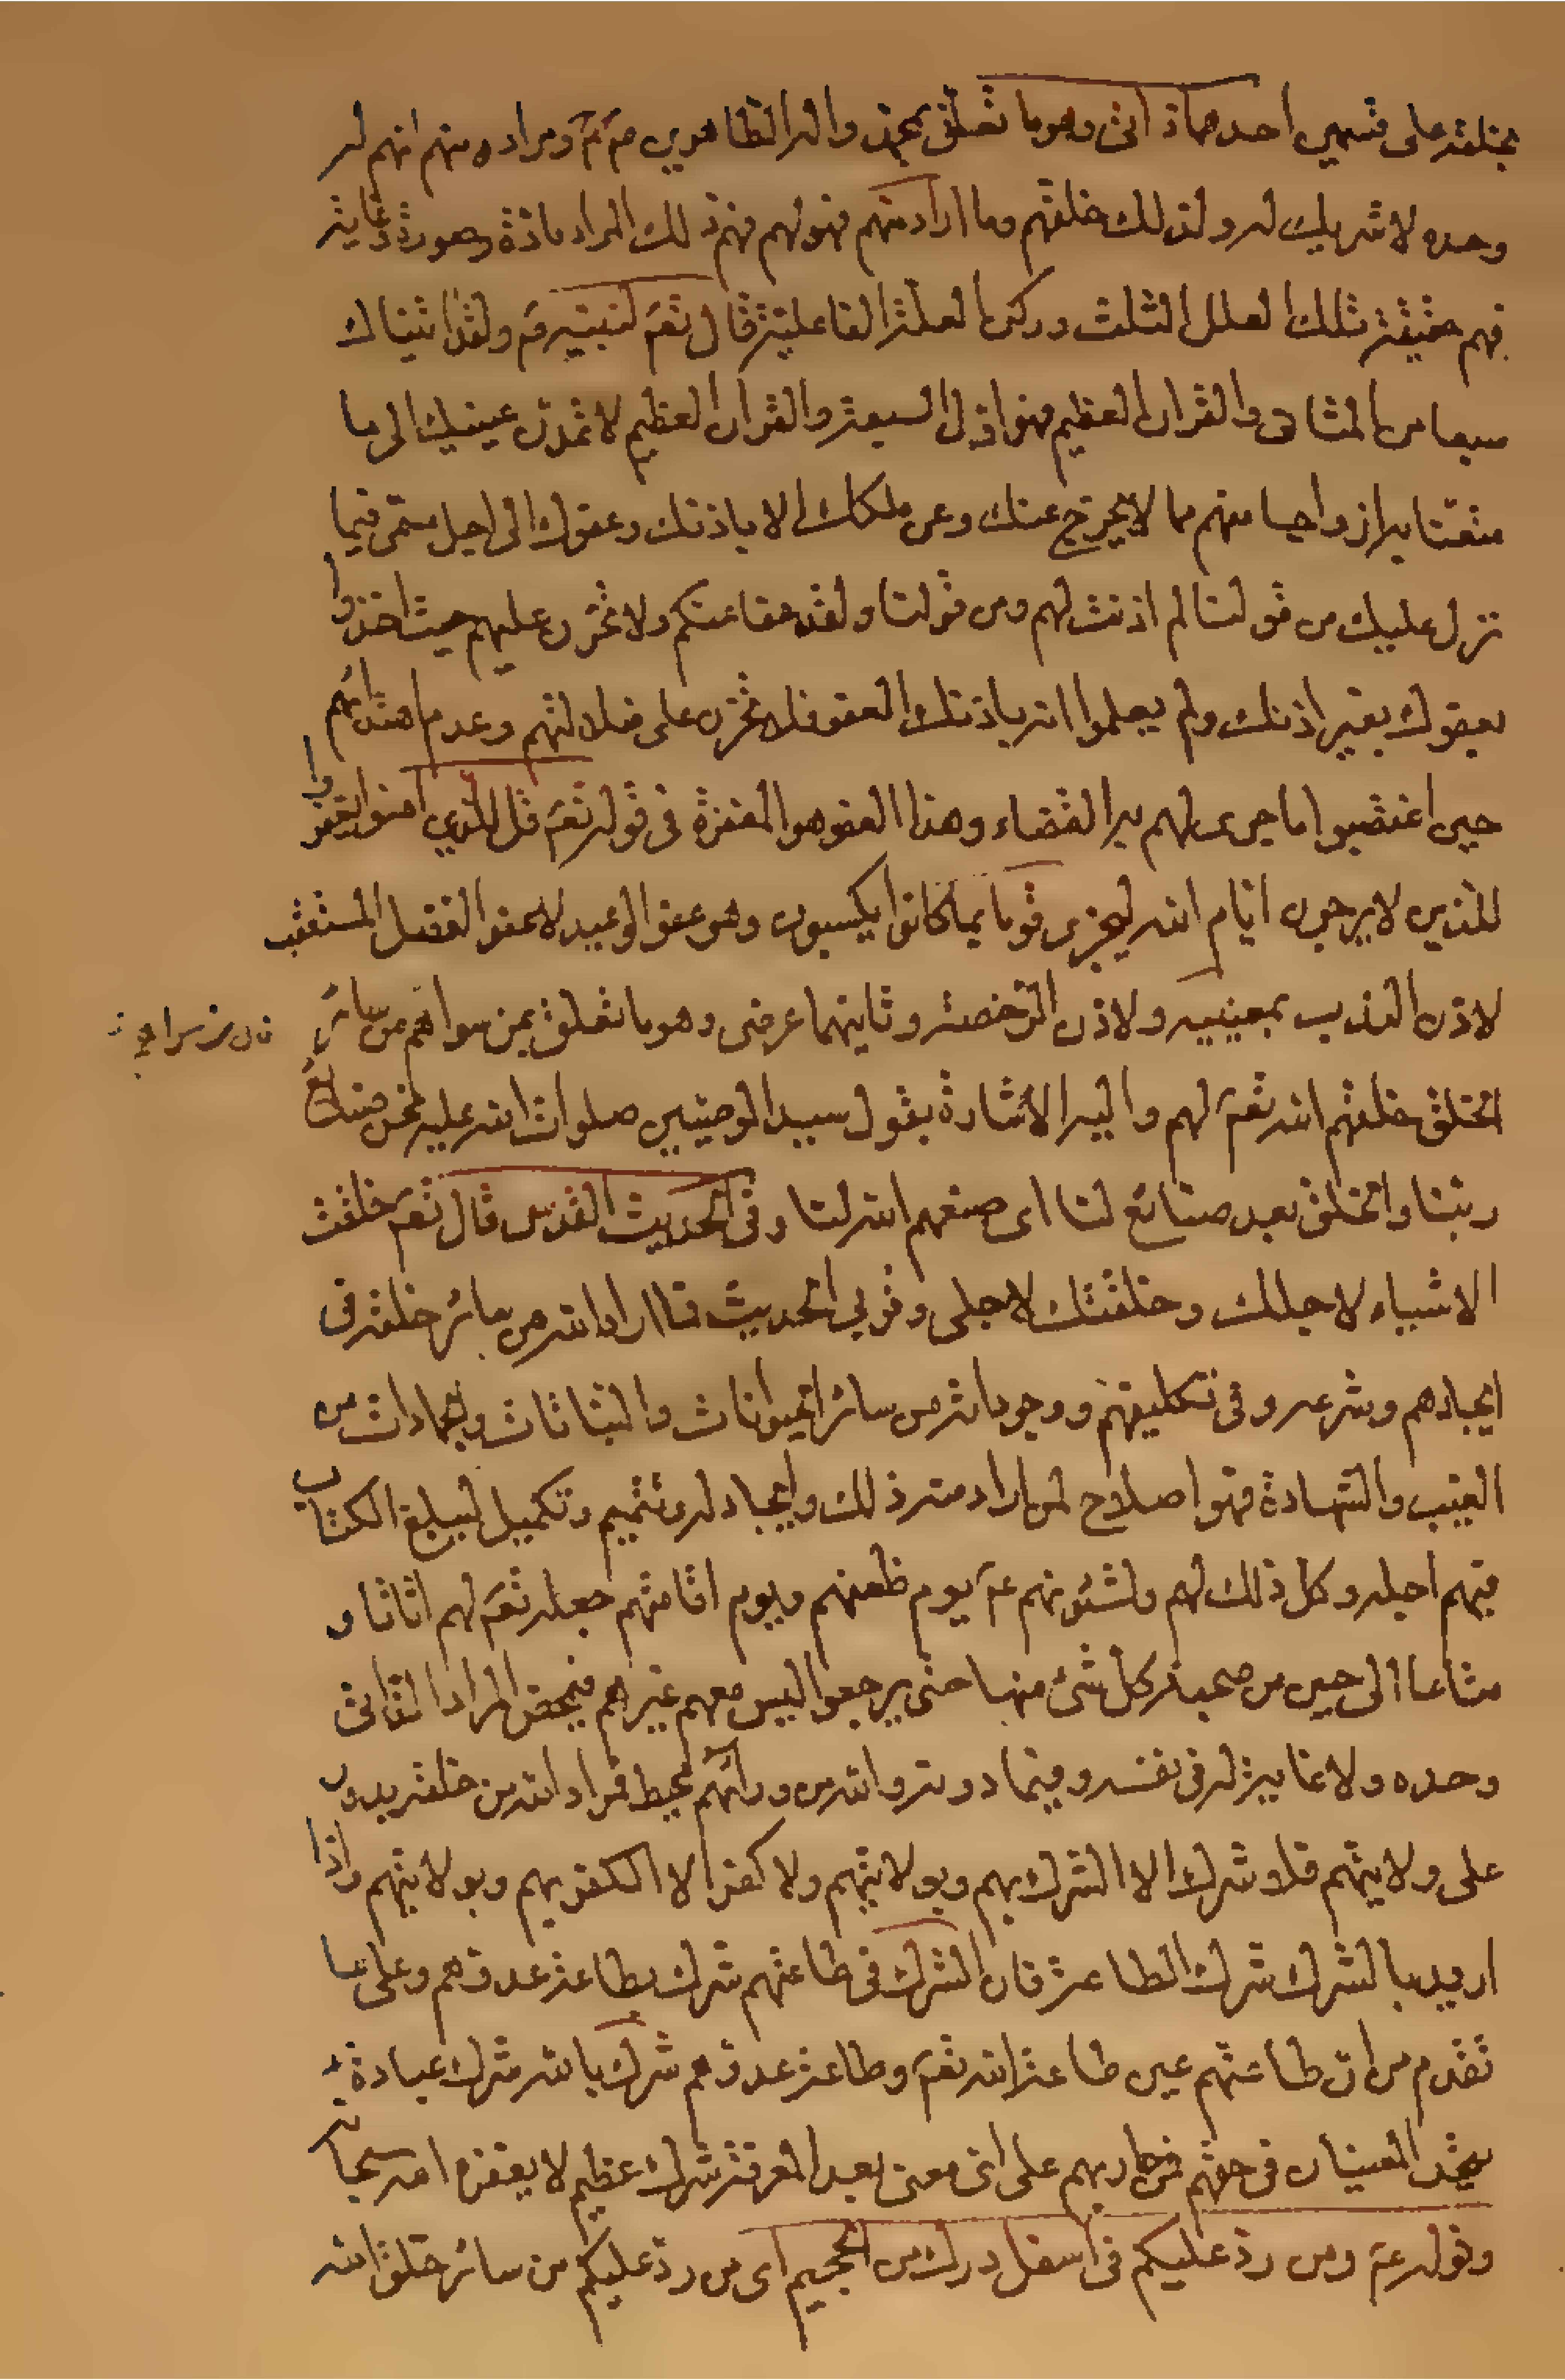 بخلقه على قسمين احدهما ذاتى وهو ما تعلق بمحمد واله الطاهرين ص م و مراده منهم انهم له
وحده لا شريك له ولذلك خلقهم وما اراد منهم فهو لهم فهم ذلك المراد مادة وصورة وغاية
فهم حقيقة تلك العلل الثلث وركن العلة الفاعلية قال تعم لنبيه ص ولقد اتيناك
سبعا من المثانى والقران العظيم فهو اذل السبعة والقران العظيم لا تمدن عينيك الى ما
متعنا به ازواجا منهم مما لا يخرج عنك وعن ملكك الا باذنك وعفوك الى اجل مسمى فيما
نزل عليك من قولنا لم اذنت لهم ومن قولنا ولقد عفا عنكم ولا تحزن عليهم حيث اخذوا
بعفوك بغير اذنك ولم يعلموا انه باذنك العفو فلا تحزن على ضلالتهم وعدم اهتدائهم
حين اغتصبوا ما جرى لهم به القضاء وهذا العفو هو المغفرة فى قوله تعم قل للذين امنوا يغفروا
للذين لا يرجون ايام الله ليجزى قوما بما كانوا يكسبون وهو عفو الوعيد لا عفو الفضل المستعقب
لاذن الندب بمعنييه ولا اذن الرخصة وثانيهما عرضى وهو ما تعلق بمن سواهم من سائر
الخلق خلقهم الله تعم لهم واليه الاشارة بقول سيد الوصيين صلوات الله عليه نحن صنائع
ربنا والخلق بعد صنائع لنا اى صنعهم الله لنا وفى الحديث القدسى قال تعم خلقت
الاشياء لاجلك وخلقتك لاجلى وقرئ الحديث فما اراد الله من سائر خلقه فى
ايجادهم وشرعه وفى تكليفهم ووجوداته من سائر الحيوانات والنباتات والجمادات من
الغيب والشهادة فهو اصلاح لمن اراد منه ذلك وايجاد له وتتميم وتكميل ليبلغ الكتاب
فيهم اجله وكل ذلك لهم ولشئونهم ع م يوم ظعنهم ويوم اقامتهم جعله تعم لهم اثاثا و
متاعا الى حين من صحبة كل شئ منها حتى يرجعوا ليس معهم غيرهم فيمحض المراد الذاتى
وحده ولا غاية له فى نفسه وفيما دونه والله من ورائهم محيط فمراد الله من خلقه يدور
على ولايتهم فلا شرك الا الشرك بهم وبولايتهم ولا كفر الا الكفر بهم وبولايتهم واذا
اريد بالشرك شرك الطاعة فان الشرك فى طاعتهم شرك بطاعة عدوهم وعلى ما
تقدم من ان طاعتهم عين طاعة الله تعم وطاعة عدوهم شرك بالله شرك عبادة
يتحد المعنيان فى حقهم فمن حاربهم على اى معنى بعد المعرفة شرك عظيم لا يغفره الله سبحانه
وقوله عم ومن رد عليكم فى اسفل درك من الجحيم اى من رد عليكم من سائر خلق الله